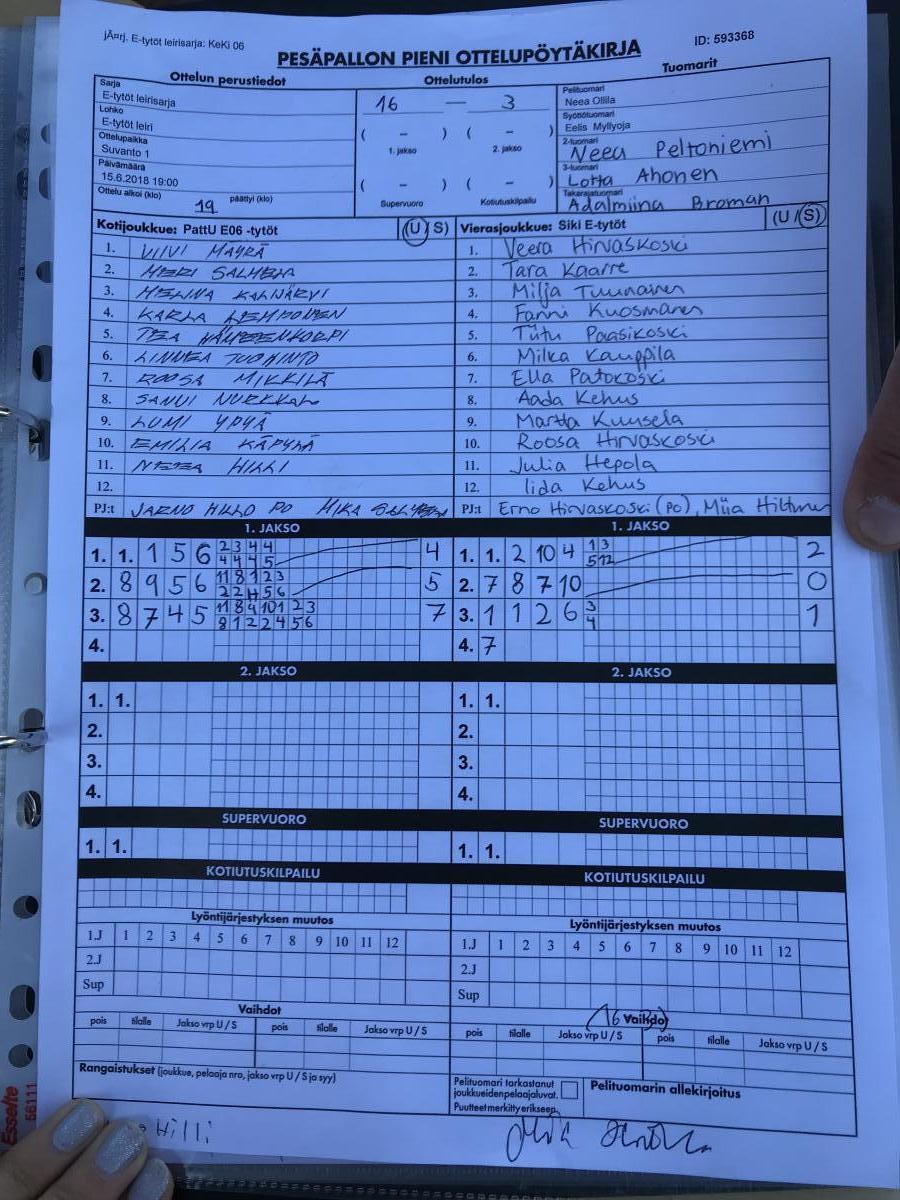 jÄ¤rj. E-tytöt leirisarja: KeKi 06
ID: 593368
PESÄPALLON PIENI OTTELUPÖYTÄKIRJA
Ottelun perustiedot
Ottelutulos
Tuomarit
Sarja
E-tytöt leirisarja
Lohko
E-tytöt leiri
Ottelupaikka
Suvanto 1
Päivämäärä
15.6.2018 19:00
Ottelu alkoi (klo) 19 päättyi (klo)
16 — 3
( - ) ( - )
1. jakso 2. jakso
( - ) ( - )
Supervuoro Kotiutuskilpailu
Pelituomari
Neea Ollila
Syöttötuomari
Eelis Myllyoja
2-tuomari
Neea Peltoniemi
3-tuomari
Lotta Ahonen
Takarajatuomari
Adalmiina Broman
Kotijoukkue: PattU E06 -tytöt (U/S)
1. VIIVI MAYRÄ
2. MERI SALMELA
3. HENNA KALNÄRVI
4. KARLA LEHMONEN
5. TEA
6. LINNEA TUOHINTO
7. ROOSA MIKKILÄ
8. SANNI
9. LUMI YPYÄ
10. EMILIA KÄPYLÄ
11. NEEA HILLI
12.
PJ:t JARNO HILLO PO MIKA
Vierasjoukkue: Siki E-tytöt (U/S)
1. Veera Hirvaskoski
2. Tara Kaarre
3. Milja Tuunainen
4. Fanni Kuosmanen
5. Tutu Paasikoski
6. Milka Kauppila
7. Ella Patokoski
8. Aada Kehus
9. Martta Kuusela
10. Roosa Hirvaskoski
11. Julia Hepola
12. Iida Kehus
PJ:t Erno Hirvaskoski (PO), Miia Hiltunen
1. JAKSO
1. 1. 1 5 6 2 3 4 4 4
4 4 4 5
2. 8 9 5 6 11 8 1 2 3 5
2 2 4 5 6
3. 8 7 4 5 11 8 9 10 1 2 3 7
8 1 2 2 4 5 6
4.
1. JAKSO
1. 1. 2 10 4 1 3 2
5 12
2. 7 8 7 10 0
3. 1 1 2 6 3 1
4
4. 7
2. JAKSO
1. 1.
2.
3.
4.
2. JAKSO
1. 1.
2.
3.
4.
SUPERVUORO
1. 1.
SUPERVUORO
1. 1.
KOTIUTUSKILPAILU
KOTIUTUSKILPAILU
Lyöntijärjestyksen muutos
1.J 1 2 3 4 5 6 7 8 9 10 11 12
2.J
Sup
Lyöntijärjestyksen muutos
1.J 1 2 3 4 5 6 7 8 9 10 11 12
2.J
Sup
Vaihdot
pois tilalle Jakso vrp U / S pois tilalle Jakso vrp U / S
16 Vaihdot
pois tilalle Jakso vrp U / S pois tilalle Jakso vrp U / S
Rangaistukset (joukkue, pelaaja nro, jakso vrp U / S ja syy)
Pelituomari tarkastanut
joukkueiden pelaajaluvat.
Puutteet merkitty erikseen.
Pelituomarin allekirjoitus
Hilli
Esselte
56111